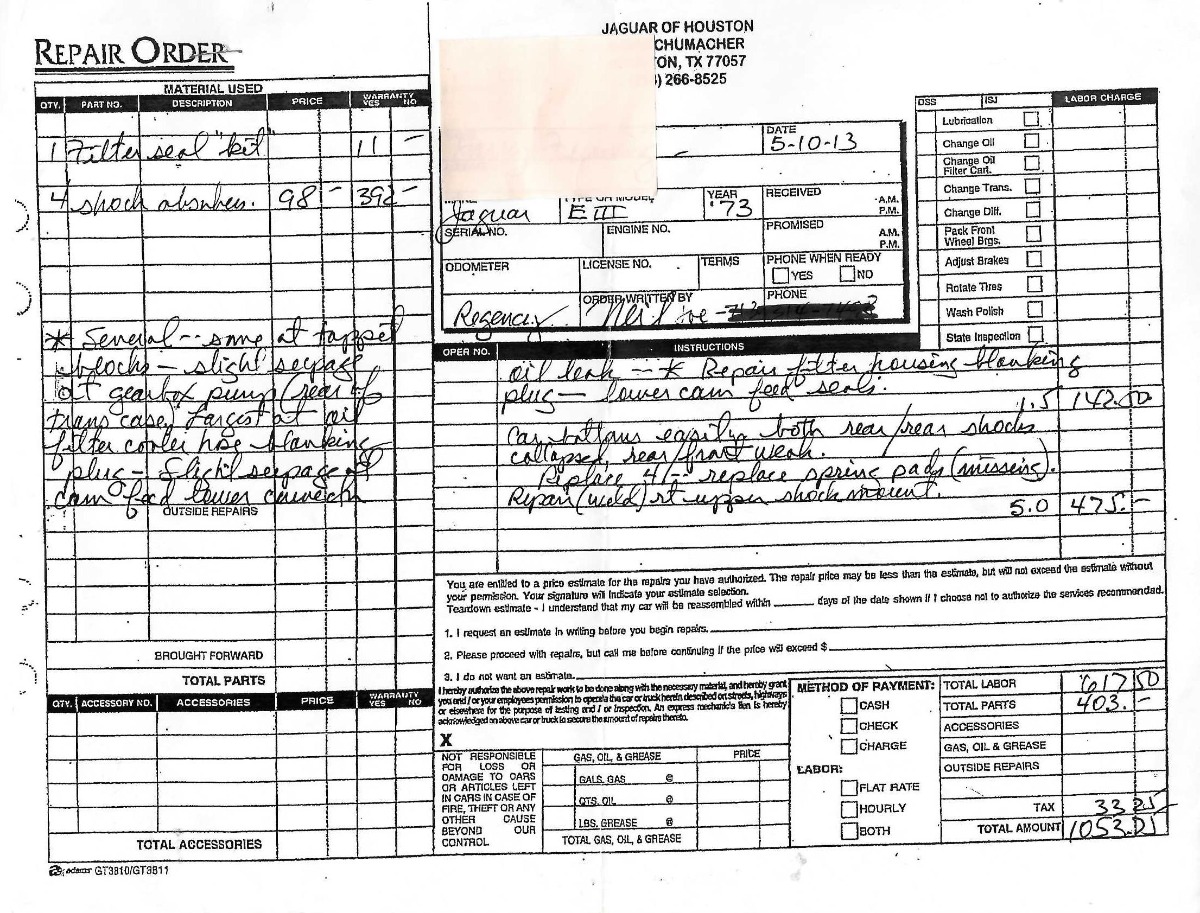 REPAIR ORDER
JAGUAR OF HOUSTON
CHUMACHER
ON, TX 77057
) 266-8525
MATERIAL USED
QTY. PART NO. DESCRIPTION PRICE WARRANTY YES NO
1 Filter seal "kit" 11 -
4 shock absorbers. 98 - 392 -
* Several -- some at tappet
blocks - slight seepage
at gearbox pump/rear of
trans case, Largest at oil
filter cooler hose blanking
plug - Slight seepage at
cam feed lower
OUTSIDE REPAIRS
BROUGHT FORWARD
TOTAL PARTS
QTY. ACCESSORY NO. ACCESSORIES PRICE WARRANTY YES NO
TOTAL ACCESSORIES
adams GT3810/GT3811
DATE
5-10-13
Jaguar
TYPE OR MODEL
E III
YEAR
'73
RECEIVED A.M. P.M.
SERIAL NO.
ENGINE NO.
PROMISED A.M. P.M.
ODOMETER
LICENSE NO.
TERMS
PHONE WHEN READY
YES NO
ORDER WRITTEN BY
PHONE
Regency
DSS ISJ LABOR CHARGE
Lubrication
Change Oil
Change Oil
Filter Cart.
Change Trans.
Change Diff.
Pack Front
Wheel Brgs.
Adjust Brakes
Rotate Tires
Wash Polish
State Inspection
OPER NO. INSTRUCTIONS
oil leak -- * Repair filter housing blanking
plug - lower cam feed seals.
1.5 142.50
Car bottoms easily both rear/rear shocks
collapsed, rear/front weak.
Replace 4/-- replace spring pads (missing).
Repair (weld) rt upper shock mount.
5.0 475.-
You are entitled to a price estimate for the repairs you have authorized. The repair price may be less than the estimate, but will not exceed the estimate without
your permission. Your signature will indicate your estimate selection.
Teardown estimate - I understand that my car will be reassembled within ______ days of the date shown if I choose not to authorize the services recommended.
1. I request an estimate in writing before you begin repairs.
2. Please proceed with repairs, but call me before continuing if the price will exceed $
3. I do not want an estimate.
I hereby authorize the above repair work to be done along with the necessary material, and hereby grant
you and / or your employees permission to operate the car or truck herein described on streets, highways
or elsewhere for the purpose of testing and / or inspection. An express mechanic's lien is hereby
acknowledged on above car or truck to secure the amount of repairs thereto.
X
NOT RESPONSIBLE
FOR LOSS OR
DAMAGE TO CARS
OR ARTICLES LEFT
IN CARS IN CASE OF
FIRE, THEFT OR ANY
OTHER CAUSE
BEYOND OUR
CONTROL
GAS, OIL, & GREASE PRICE
GALS. GAS @
QTS. OIL @
LBS. GREASE @
TOTAL GAS, OIL, & GREASE
METHOD OF PAYMENT:
CASH
CHECK
CHARGE
LABOR:
FLAT RATE
HOURLY
BOTH
TOTAL LABOR 617 50
TOTAL PARTS 403.-
ACCESSORIES
GAS, OIL & GREASE
OUTSIDE REPAIRS
TAX 33 25
TOTAL AMOUNT 1053.75